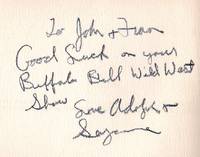 To John & Fran
Good Luck on your
Buffalo Bill Wild West
Show
Love Adolph &
Suzanne